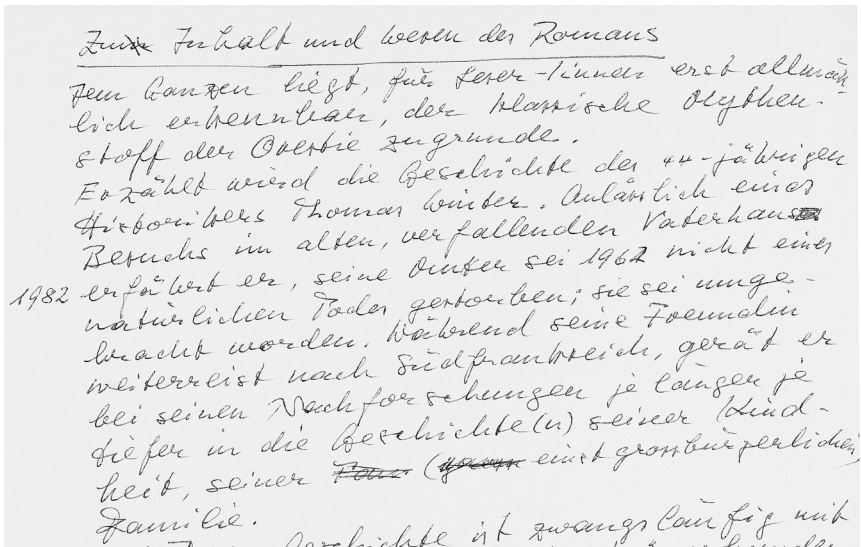 Zum Inhalt und Wesen des Romans
Dem Ganzen liegt, für Leser-/innen erst allmäh-
lich erkennbar, der klassische Mythen-
stoff der Orestie zugrunde.
Erzählt wird die Geschichte des 44-jährigen
Historikers Thomas Winter. Anlässlich eines
Besuchs im alten, verfallenden Vaterhaus
1982 erfährt er, seine Mutter sei 1962 nicht eines
natürlichen Todes gestorben; sie sei umge-
bracht worden. Während seine Freundin
weiterreist nach Südfrankreich, gerät er
bei seinen Nachforschungen je länger je
tiefer in die Geschichte(n) seiner Kind-
heit, seiner (einst grossbürgerlichen)
Familie.
Geschichte ist zwangsläufig mit